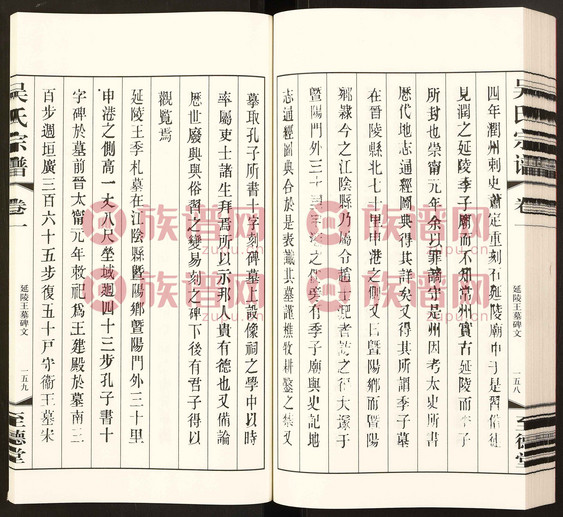 四年潤州刺史蕭定重刻石延陵廟中于是習俗徒
見潤之延陵季子廟而不知常州實古延陵而季子
所封也崇甯元年余以罪謫守是州因考太史所書
歷代地志通經圖典得其詳矣又得其所謂季子墓
在晉陵縣北七十里申港之側又曰暨陽鄉而暨陽
鄉隸今之江陰縣乃屬令趙士
暨陽門外三十里申港之
有季子廟與史記地
志通經圖典合於是表識其墓謹樵牧耕鑿之禁又
摹取孔子所書十字刻碑墓上設像祠之學中以時
率屬吏士諸生拜焉所以示邦人貴有德也又備論
歷世廢興與俗習之變易刻之碑下後有君子得以
觀覽焉
延陵王季札墓在江陰縣暨陽鄉暨陽門外三十里
申港之側高一丈八尺塋域週四十三步孔子書十
字碑於墓前晉太甯元年敕祀爲王建殿於墓南三
百步週垣廣三百六十五步復五十戸守衛王墓宋
吳氏宗譜
卷一
延陵王墓碑文
一五八
至德堂
吳氏宗譜
卷一
延陵王墓碑文
一五九
至德堂
族譜网
zupu.cn